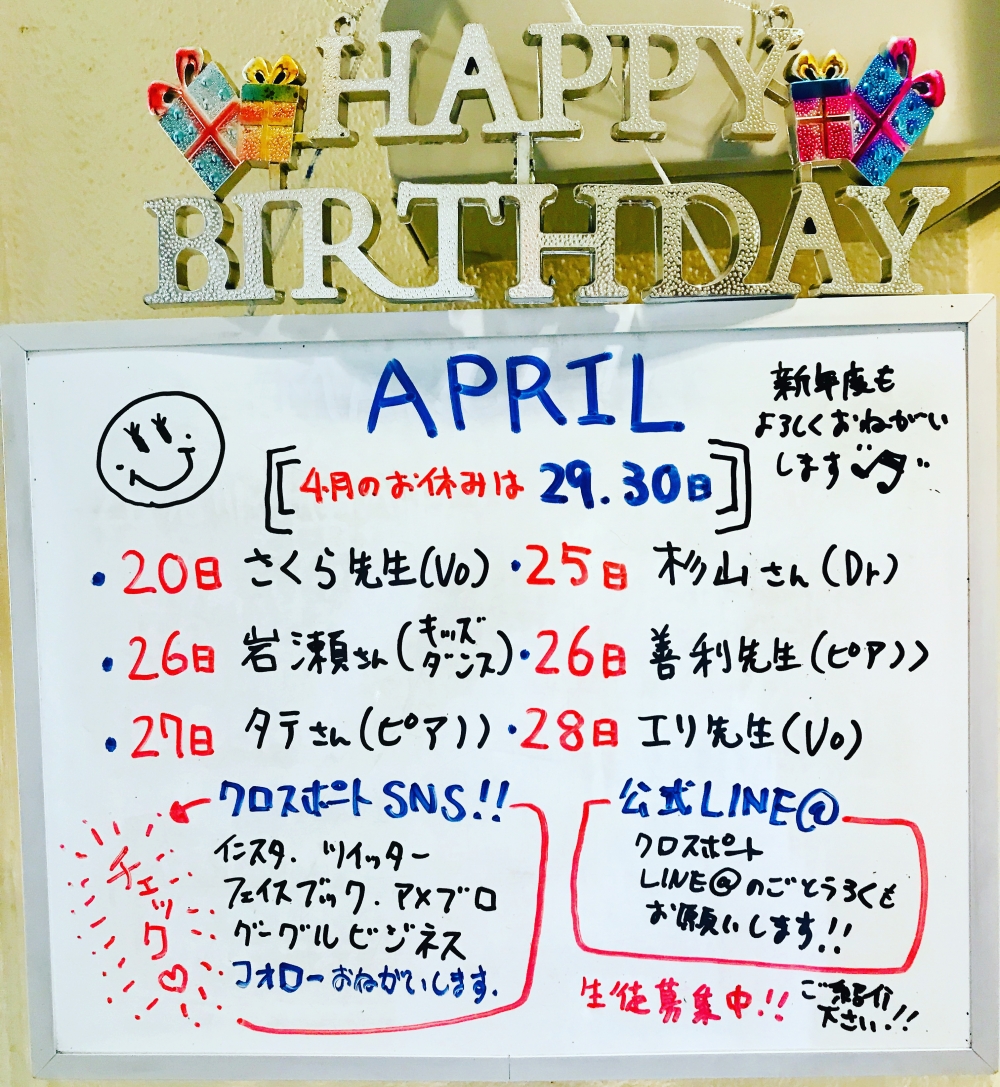 HAPPY
BIRTHDAY
APRIL
新年度も
よろしくおねがい
します
[4月のお休みは 29.30日]
・20日 さくら先生(Vo)
・25日 杉山さん(Dr)
・26日 岩瀬さん(キッズダンス)
・26日 善利先生(ピアノ)
・27日 タテさん(ピアノ)
・28日 エリ先生(Vo)
クロスポートSNS!!
チェック♡
インスタ. ツイッター
フェイスブック.アメブロ
グーグルビジネス
フォローおねがいします.
公式LINE@
クロスポート
LINE@のごとうろくも
お願いします!!
生徒募集中!!
ご紹介
下さい!!